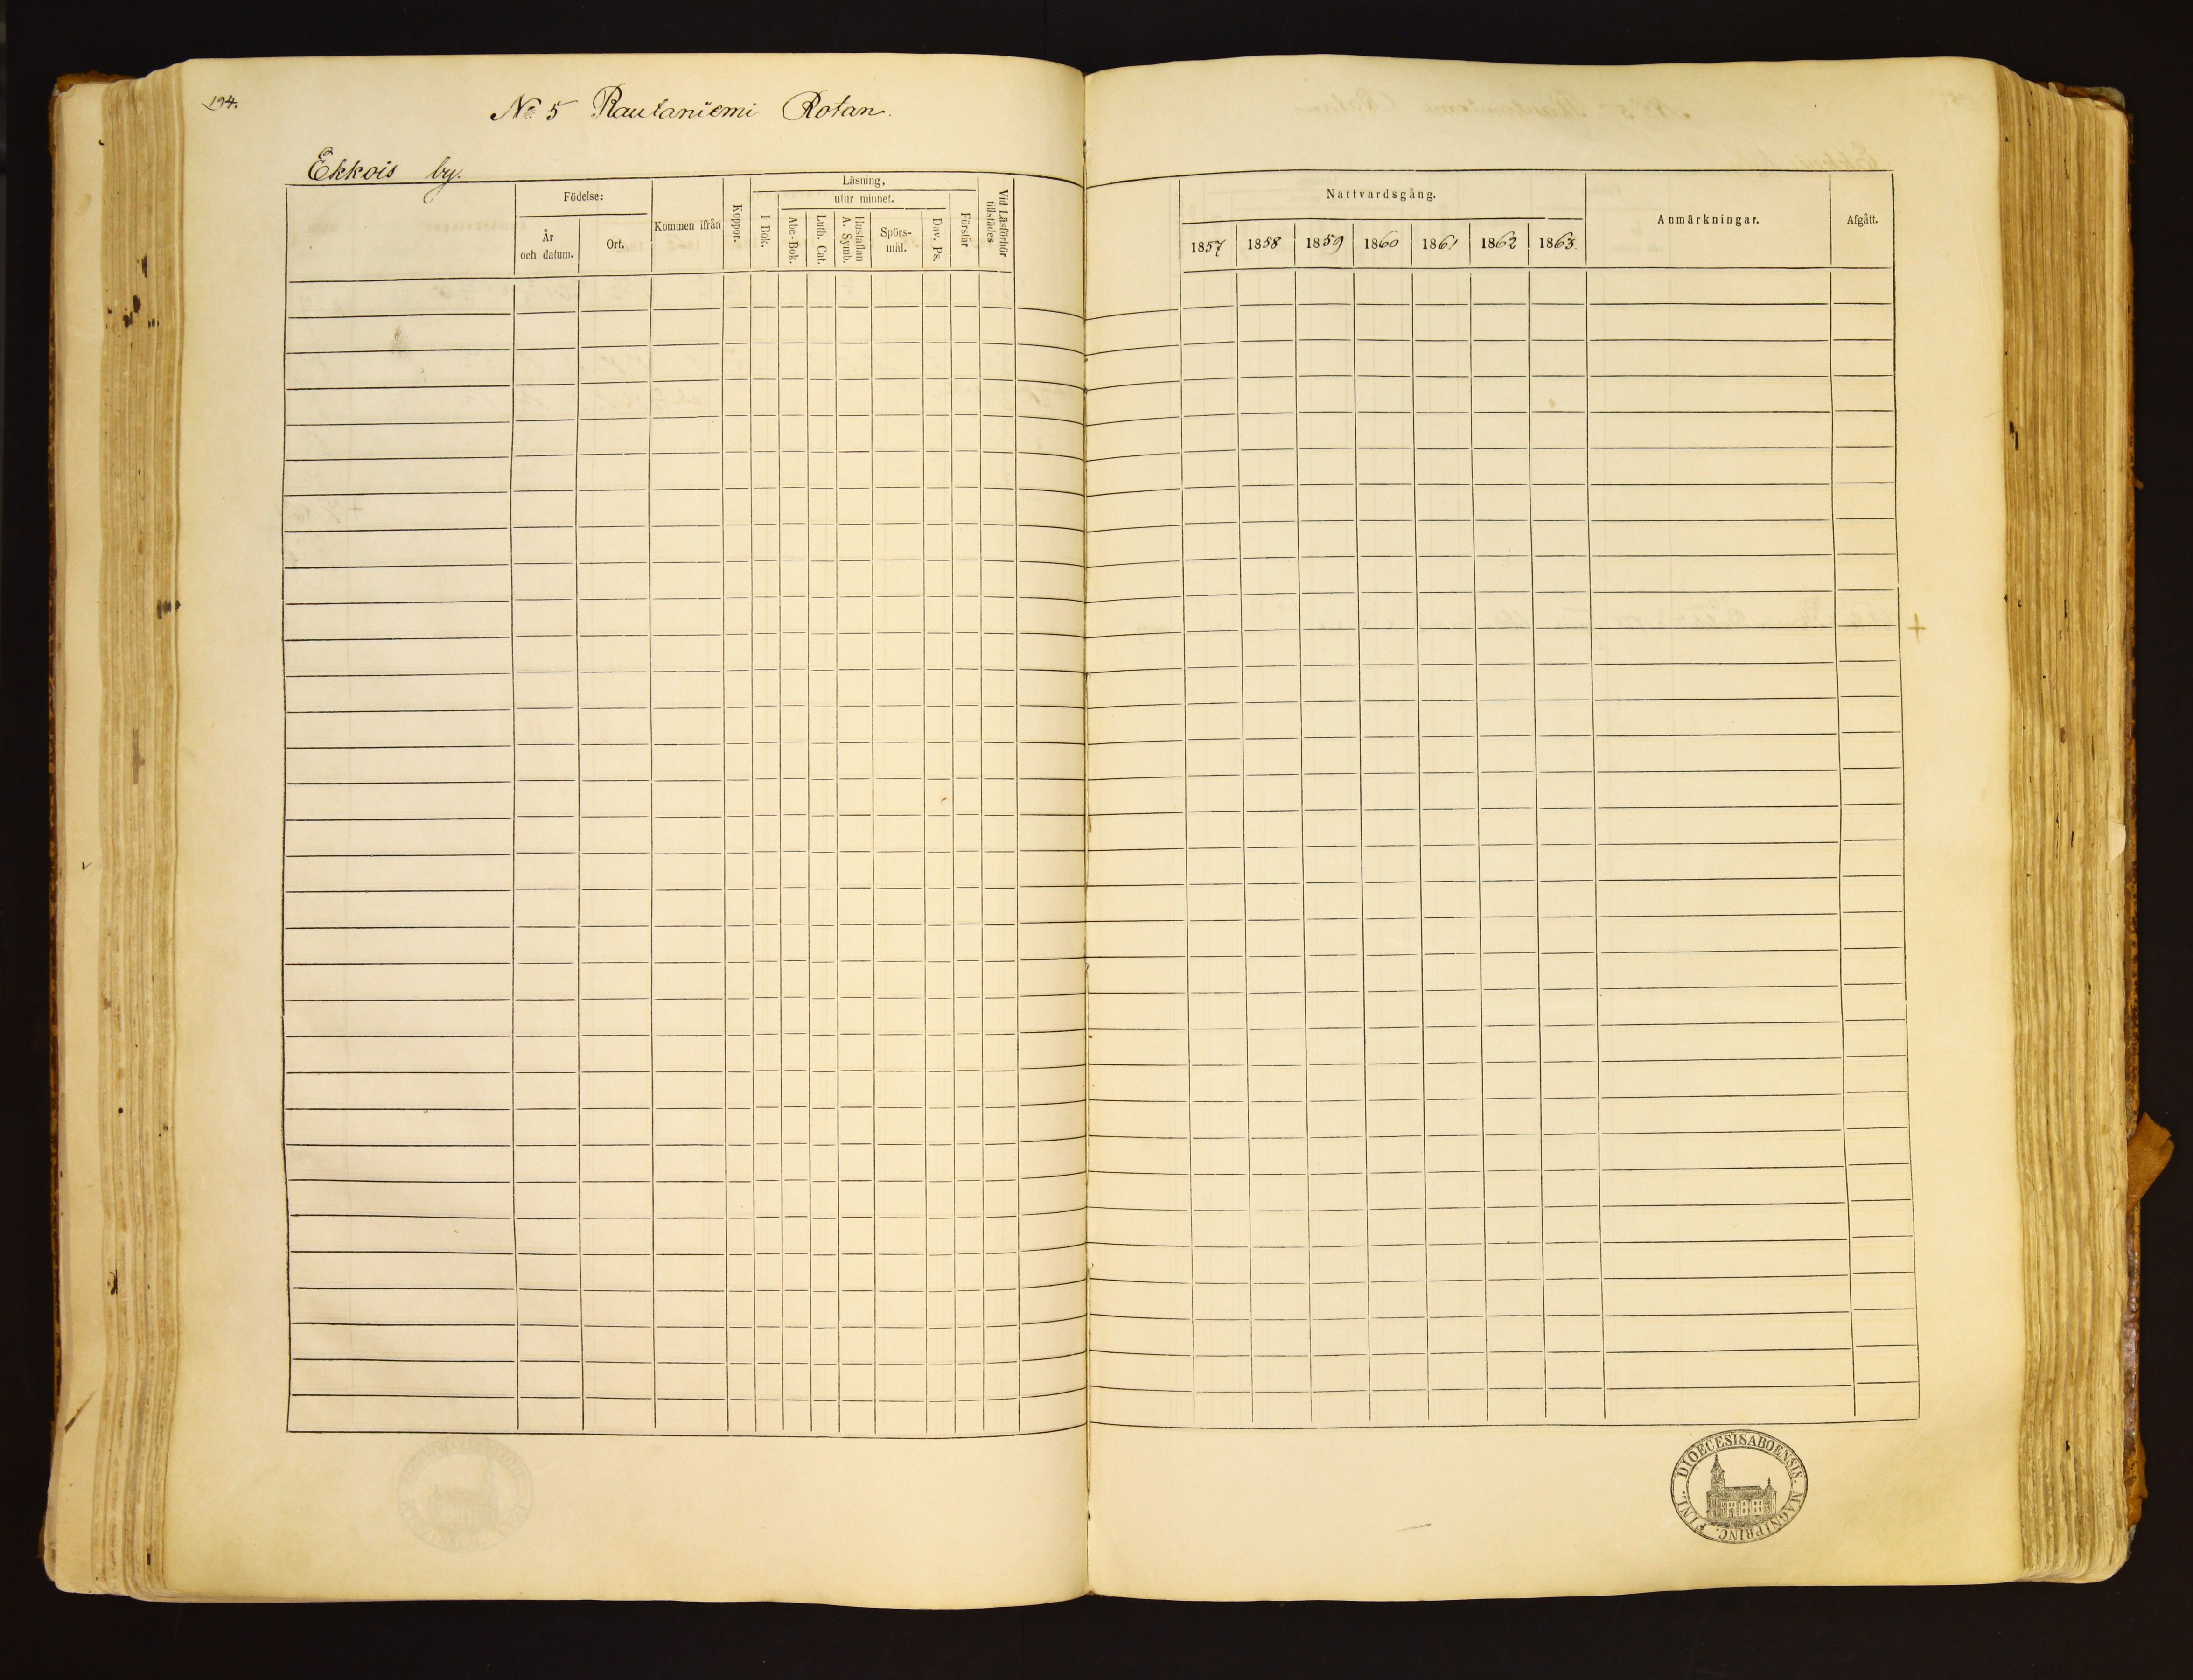 194.
No 5 Rautaniemi Rotan.
Ekkois by.
Födelse:
År och datum.
Ort.
Kommen ifrån
Koppor.
Läsning,
I Bok.
utur minnet.
Abc-Bok.
Luth. Cat.
Hustaflan A. Symb.
Spörs-mål.
Dav. Ps.
Förstår
Vid Läsförhör tillstädes
Nattvardsgång.
1857 1858 1859 1860 1861 1862 1863.
Anmärkningar.
Afgått.
DIOECESIS ABOENSIS. MAGNI PRINC. FINL.